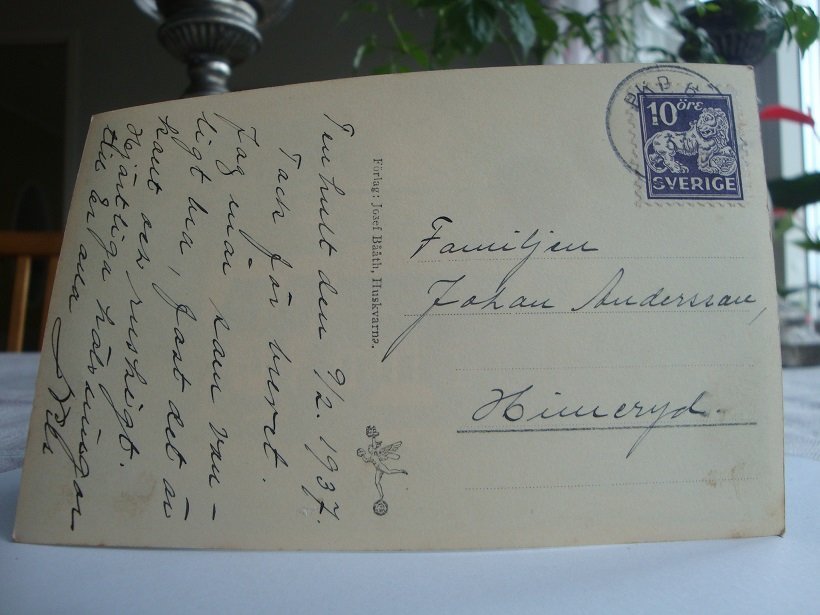 Tenhult den 9/2. 1937.
Tack för brevet.
Jag mår som van-
ligt bra, fast det är
kallt och ruskigt.
Hjärtliga hälsningar
till er alla
Förlag: Josef Bååth, Huskvarna.
10 öre
SVERIGE
Familjen
Johan Andersson,
Hinneryd.